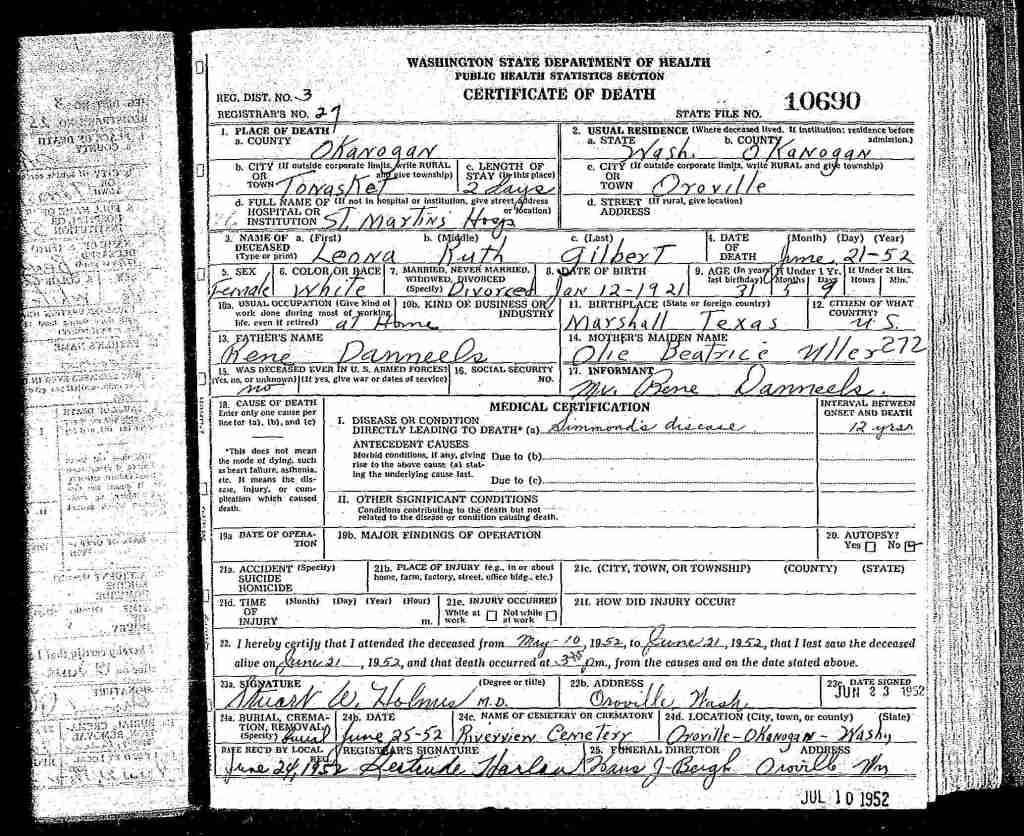 WASHINGTON STATE DEPARTMENT OF HEALTH
PUBLIC HEALTH STATISTICS SECTION
CERTIFICATE OF DEATH
REG. DIST. NO. 3
REGISTRAR'S NO. 27
STATE FILE NO. 10690
1. PLACE OF DEATH
a. COUNTY OKanogan
2. USUAL RESIDENCE (Where deceased lived. If institution: residence before admission.)
a. STATE Wash. b. COUNTY OKanogan
b. CITY (If outside corporate limits, write RURAL and give township) OR TOWN Tonasket
c. LENGTH OF STAY (in this place) 2 days
c. CITY (If outside corporate limits, write RURAL and give township) OR TOWN Oroville
d. FULL NAME OF (If not in hospital or institution, give street address or location) HOSPITAL OR INSTITUTION St. Martins Hosp
d. STREET (If rural, give location) ADDRESS
3. NAME OF DECEASED (Type or print) a. (First) Leona b. (Middle) Ruth c. (Last) Gilbert
4. DATE OF DEATH (Month) (Day) (Year) June 21-52
5. SEX Female
6. COLOR OR RACE White
7. MARRIED, NEVER MARRIED, WIDOWED, DIVORCED (Specify) Divorced
8. DATE OF BIRTH Jan 12-1921
9. AGE (In years last birthday) 31 If Under 1 Yr. Months 5 Days 9 If Under 24 Hrs. Hours Min.
10a. USUAL OCCUPATION (Give kind of work done during most of working life, even if retired) at Home
10b. KIND OF BUSINESS OR INDUSTRY
11. BIRTHPLACE (State or foreign country) Marshall Texas
12. CITIZEN OF WHAT COUNTRY? U.S.
13. FATHER'S NAME Rene Danneels
14. MOTHER'S MAIDEN NAME Olie Beatrice 272
15. WAS DECEASED EVER IN U. S. ARMED FORCES? (Yes, no, or unknown) (If yes, give war or dates of service) no
16. SOCIAL SECURITY NO.
17. INFORMANT Mr. Rene Danneels.
18. CAUSE OF DEATH
Enter only one cause per line for (a), (b), and (c)
*This does not mean the mode of dying, such as heart failure, asthenia, etc. It means the disease, injury, or complication which caused death.
MEDICAL CERTIFICATION
INTERVAL BETWEEN ONSET AND DEATH
I. DISEASE OR CONDITION
DIRECTLY LEADING TO DEATH* (a) Simmond's disease 12 yrs
ANTECEDENT CAUSES
Morbid conditions, if any, giving rise to the above cause (a) stating the underlying cause last.
Due to (b)
Due to (c)
II. OTHER SIGNIFICANT CONDITIONS
Conditions contributing to the death but not related to the disease or condition causing death.
19a DATE OF OPERATION
19b. MAJOR FINDINGS OF OPERATION
20. AUTOPSY?
Yes No
21a. ACCIDENT (Specify) SUICIDE HOMICIDE
21b. PLACE OF INJURY (e.g., in or about home, farm, factory, street, office bldg., etc.)
21c. (CITY, TOWN, OR TOWNSHIP) (COUNTY) (STATE)
21d. TIME OF INJURY (Month) (Day) (Year) (Hour) m.
21e. INJURY OCCURRED
While at work Not while at work
21f. HOW DID INJURY OCCUR?
22. I hereby certify that I attended the deceased from May-10, 1952, to June 21, 1952, that I last saw the deceased
alive on June 21, 1952, and that death occurred at Pm., from the causes and on the date stated above.
23a. SIGNATURE (Degree or title) Stuart W. Holmes M.D.
22b. ADDRESS Oroville, Wash.
23c. DATE SIGNED JUN 23 1952
24a. BURIAL, CREMATION, REMOVAL (Specify) Burial
24b. DATE June 25-52
24c. NAME OF CEMETERY OR CREMATORY Riverview Cemetery
24d. LOCATION (City, town, or county) (State) Oroville-Okanogan-Washn
DATE REC'D BY LOCAL REG. June 24, 1952
REGISTRAR'S SIGNATURE Gertrude Harlan
25. FUNERAL DIRECTOR Hans J Bergh ADDRESS Oroville Wn
JUL 10 1952